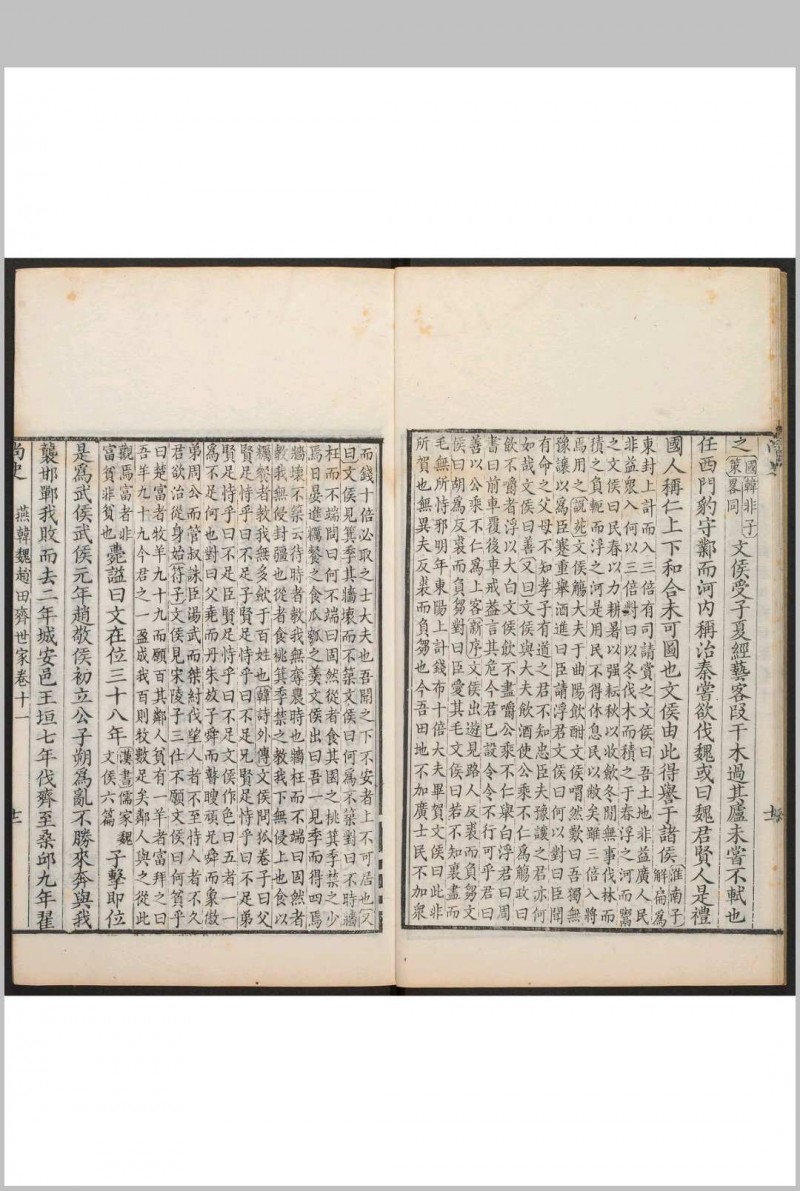 之國韓非子策畧同文侯受子夏經藝客段干木過其廬未嘗不軾也
任西門豹守鄴而河内稱治秦嘗欲伐魏或曰魏君賢人是禮
國人稱仁上下和合未可圖也文侯由此得譽于諸侯淮南子解扁為
東封上計而入三倍有司請賞之文侯曰吾土地非益廣人民
非益衆入何以三倍對曰以冬伐木而積之于春浮之河而鬻
之文侯曰民春以力耕暑以强耘秋以收歛冬閒無事伐林而
積之負軛而浮之河是用民不得休息民以敝矣雖三倍入將
焉用之說苑文侯觴大夫于曲陽飲酣文侯喟然歎曰吾獨無
豫讓以為臣蹇重舉酒進曰臣請浮君文侯曰何以對曰臣聞
有命之父母不知孝子有道之君不知忠臣夫豫讓之君亦何
如哉文侯曰善又曰文侯與大夫飲酒使公乘不仁為觴政曰
飲不嚼者浮以大白文侯飲不盡嚼公乘不仁舉白浮君君曰
書曰前車覆後車戒葢言其危今君已設令令不行可乎君曰
善以公乘不仁為上客新序文侯出遊見路人反裘而負芻文
侯曰胡為反裘而負芻對曰臣愛其毛文侯曰若不知裏盡而
毛無所恃邪明年東陽上計錢布十倍大夫畢賀文侯曰此非
所賀也無異夫反裘而負芻也今吾田地不加廣士民不加衆
而錢十倍必取之士大夫也吾聞之下不安者上不可居也又
曰文侯見箕季其牆壞而不築文侯曰何為不築對曰不時牆
枉而不端問曰何不端曰固然從者食其園之桃箕季禁之少
焉日晏進糲餐之食瓜瓠之羹文侯出曰吾一見季而得四焉
牆壞不築云待時者教我無奪農時也牆枉而不端曰固然者
教我無侵封疆也從者食桃箕季禁之教我下無侵上也食以
糲餐者教我無多歛于百姓也韓詩外傳文侯問狐卷子曰父
賢足恃乎曰不足子賢足恃乎曰不足兄賢足恃乎曰不足弟
賢足恃乎曰不足臣賢足恃乎曰不足文侯作色曰五者一一
為不足何也對曰父堯而丹朱放子舜而瞽瞍頑兄舜而象傲
弟周公而管叔誅臣湯武而桀紂伐望人者不至恃人者不久
君欲治從身始符子文侯見宋陵子三仕不願文侯曰何貧乎
曰楚富者牧羊九十九而願百其鄰人貧有一羊者富拜之曰
吾羊九十九今君之一盈成我百則牧數足矣鄰人與之從此
觀焉富者非富貧非貧也薨謚曰文在位三十八年漢書儒家魏文侯六篇子擊即位
是為武侯武侯元年趙敬侯初立公子朔為亂不勝來奔與我
襲邯鄲我敗而去二年城安邑王垣七年伐齊至桑邱九年翟
尚史 燕韓魏趙田齊世家卷十一 十二